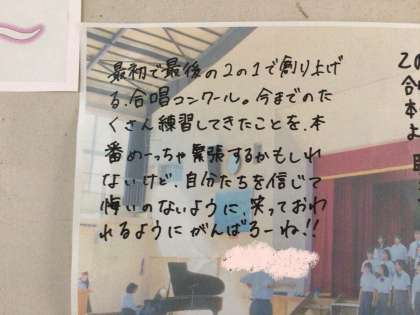 最初で最後の2の1で創り上げ
る、合唱コンクール。今までのた
くさん練習してきたことを、本
番めーっちゃ緊張するかもしれ
ないけど、自分たちを信じて
悔いのないように、笑っておわ
れるようにがんばろーね!!
2の
合
本
よ